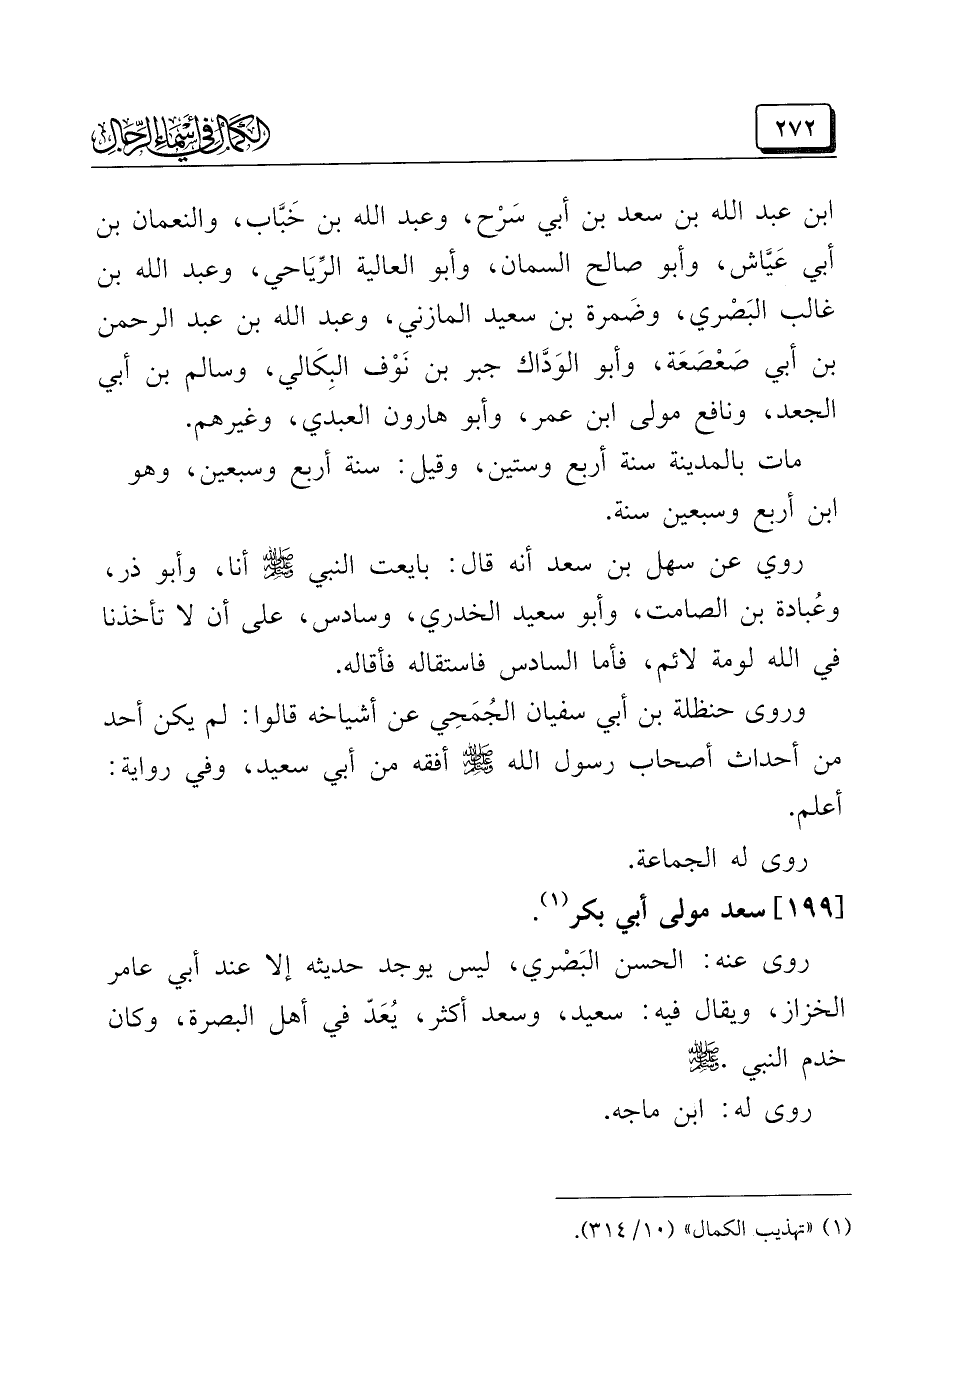 ٢٧٢
الكمال في أسماء الرجال
ابن عبد الله بن سعد بن أبي سَرْح، وعبد الله بن خَبَّاب، والنعمان بن
أبي عَيَّاش، وأبو صالح السمان، وأبو العالية الرِّيَاحي، وعبد الله بن
غالب البَصْري، وضَمرة بن سعيد المازني، وعبد الله بن عبد الرحمن
بن أبي صَعْصَعَة، وأبو الوَدَّاك جبر بن نَوْف البِكَالي، وسالم بن أبي
الجعد، ونافع مولى ابن عمر، وأبو هارون العبدي، وغيرهم.
مات بالمدينة سنة أربع وستين، وقيل: سنة أربع وسبعين، وهو
ابن أربع وسبعين سنة.
روي عن سهل بن سعد أنه قال: بايعت النبي ﷺ أنا، وأبو ذر،
وعُبادة بن الصامت، وأبو سعيد الخدري، وسادس، على أن لا تأخذنا
في الله لومة لائم، فأما السادس فاستقاله فأقاله.
وروى حنظلة بن أبي سفيان الجُمَحِي عن أشياخه قالوا: لم يكن أحد
من أحداث أصحاب رسول الله ﷺ أفقه من أبي سعيد، وفي رواية:
أعلم.
روى له الجماعة.
[١٩٩] سعد مولى أبي بكر(١).
روى عنه: الحسن البَصْري، ليس يوجد حديثه إلا عند أبي عامر
الخزاز، ويقال فيه: سعيد، وسعد أكثر، يُعَدّ في أهل البصرة، وكان
خدم النبي ﷺ.
روى له: ابن ماجه.
(١) «تهذيب الكمال» (١٠/ ٣١٤).